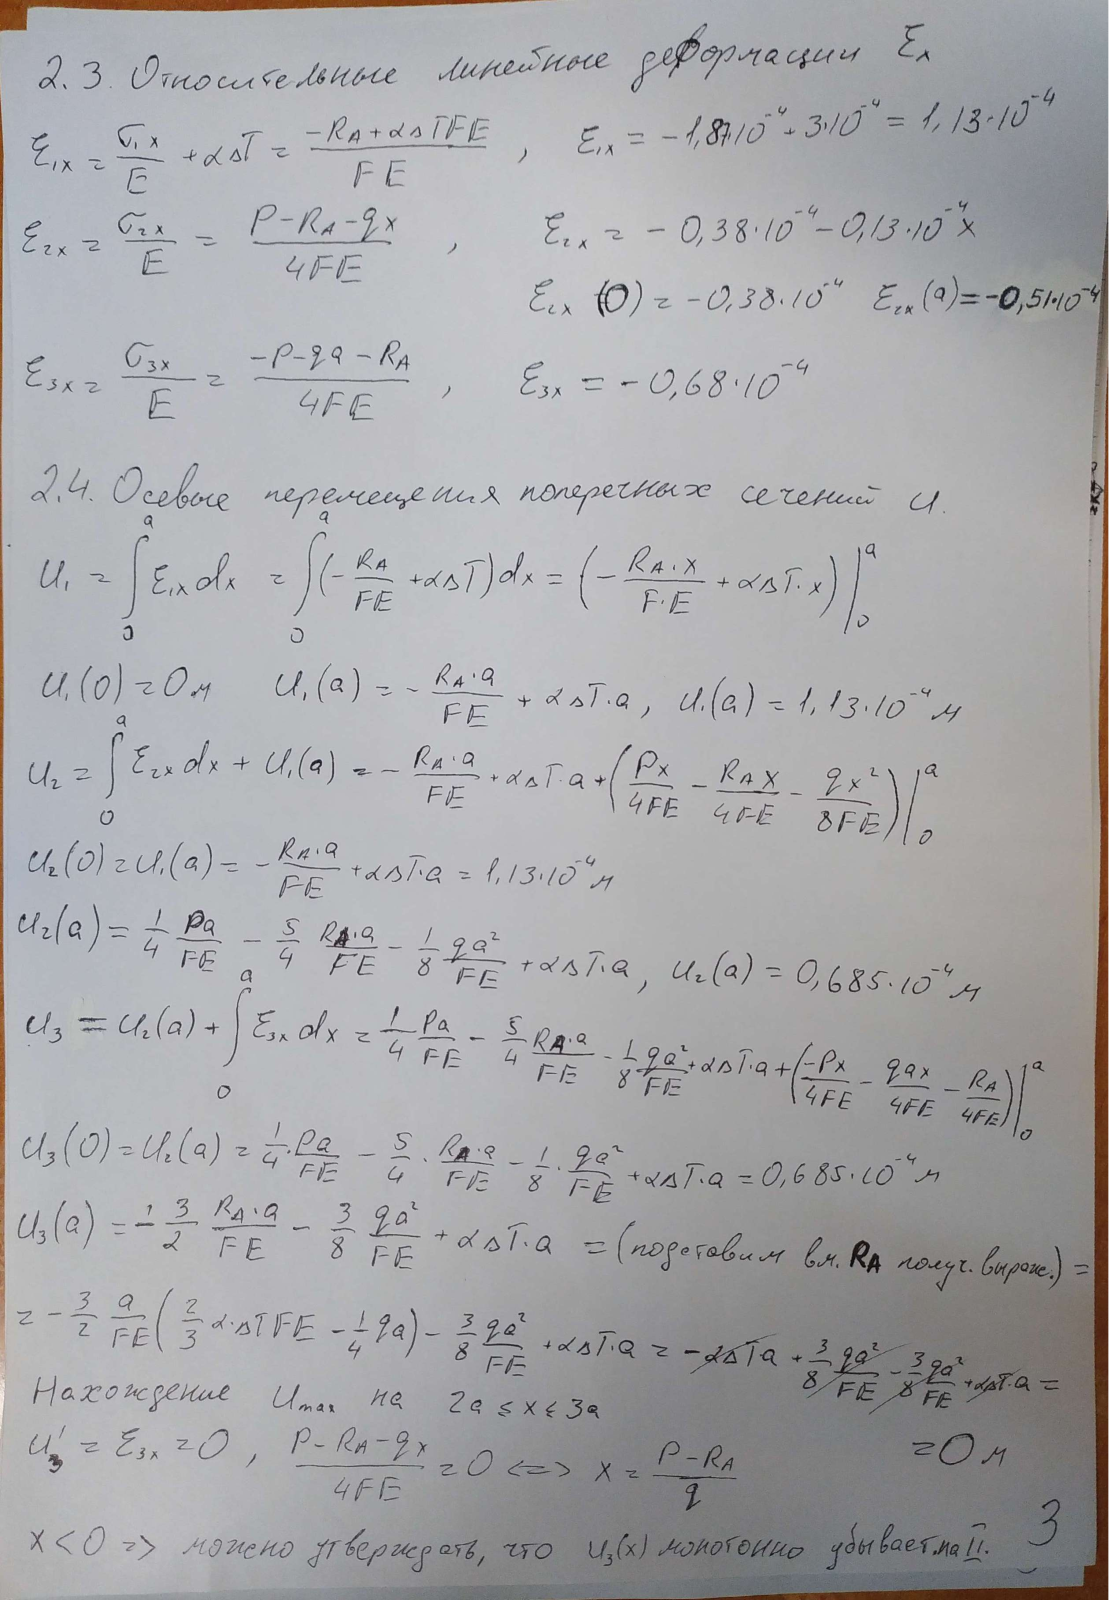 2.3. Относительные линейные деформации Ɛx
Ɛ1x = σ1x/E + αΔT = (-RA + αΔTFE)/FE , Ɛ1x = -1,87·10^-4 + 3·10^-4 = 1,13·10^-4
Ɛ2x = σ2x/E = (P-RA-qx)/4FE , Ɛ2x = -0,38·10^-4 - 0,13·10^-4 x
Ɛ2x (0) = -0,38·10^-4 Ɛ2x (a) = -0,51·10^-4
Ɛ3x = σ3x/E = (-P-qa-RA)/4FE , Ɛ3x = -0,68·10^-4
2.4. Осевые перемещения поперечных сечений U.
U1 = ∫0^a Ɛ1x dx = ∫0^a (-RA/FE + αΔT)dx = (-RA·x/F·E + αΔT·x)|0^a
U1(0) = 0 м U1(a) = -RA·a/FE + αΔT·a, U1(a) = 1,13·10^-4 м
U2 = ∫0^a Ɛ2x dx + U1(a) = -RA·a/FE + αΔT·a + (Px/4FE - RAx/4FE - qx²/8FE)|0^a
U2(0) = U1(a) = -RA·a/FE + αΔT·a = 1,13·10^-4 м
U2(a) = 1/4 Pa/FE - 5/4 RA·a/FE - 1/8 qa²/FE + αΔT·a, U2(a) = 0,685·10^-4 м
U3 = U2(a) + ∫0^a Ɛ3x dx = 1/4 Pa/FE - 5/4 RA·a/FE - 1/8 qa²/FE + αΔT·a + (-Px/4FE - qax/4FE - RA/4FE)|0^a
U3(0) = U2(a) = 1/4·Pa/FE - 5/4·RA·a/FE - 1/8·qa²/FE + αΔT·a = 0,685·10^-4 м
U3(a) = - 3/2 RA·a/FE - 3/8 qa²/FE + αΔT·a = (подставим вм. RA получ. выраж.) =
= -3/2 a/FE (2/3 α·ΔTFE - 1/4 qa) - 3/8 qa²/FE + αΔT·a = -αΔTa + 3/8 qa²/FE - 3/8 qa²/FE + αΔT·a =
Нахождение Umax на 2a ≤ x ≤ 3a
U'3 = Ɛ3x = 0 , (P-RA-qx)/4FE = 0 <=> x = (P-RA)/q = 0 м
x < 0 => можно утверждать, что U3(x) монотонно убывает на II.
3